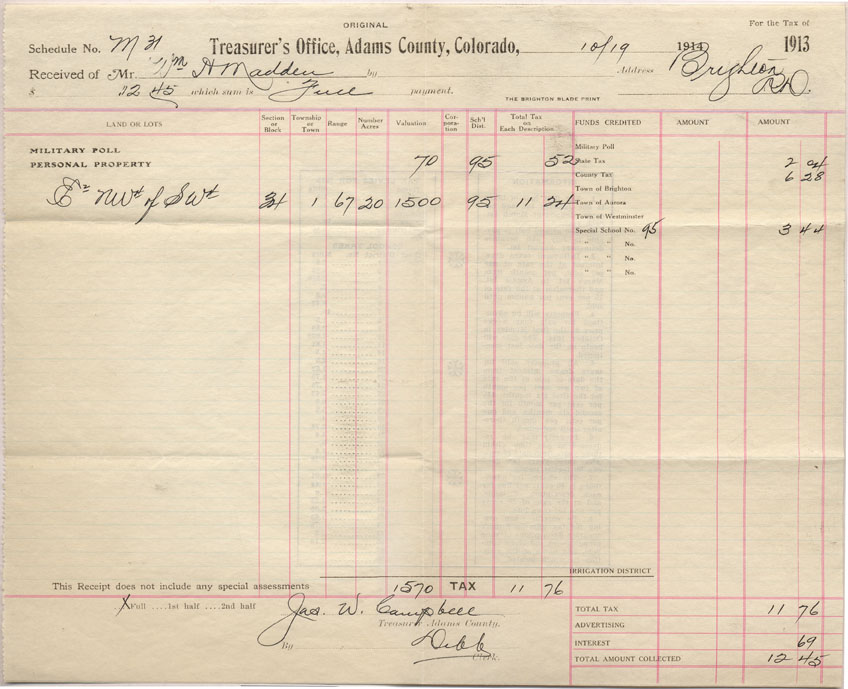 ORIGINAL
For the Tax of
Schedule No. M 31 Treasurer's Office, Adams County, Colorado, 10/19 1914 1913
Received of Mr. Wm H Madden by Address Brighton
$ 12 45 which sum is Full payment.
THE BRIGHTON BLADE PRINT
LAND OR LOTS Section or Block Township or Town Range Number Acres Valuation Cor-pora-tion Sch'l Dist. Total Tax on Each Description FUNDS CREDITED AMOUNT AMOUNT
MILITARY POLL Military Poll
PERSONAL PROPERTY 70 95 52 State Tax 2 04
County Tax 6 28
Town of Brighton
E½ NW¼ of SW¼ 34 1 67 20 1500 95 11 24 Town of Aurora
Town of Westminster
Special School No. 95 3 44
" " No.
" " No.
" " No.
IRRIGATION DISTRICT
This Receipt does not include any special assessments 1570 TAX 11 76
X Full ....1st half ....2nd half Jas. W. Campbell TOTAL TAX 11 76
Treasurer Adams County. ADVERTISING
By Dibb INTEREST 69
Clerk. TOTAL AMOUNT COLLECTED 12 45